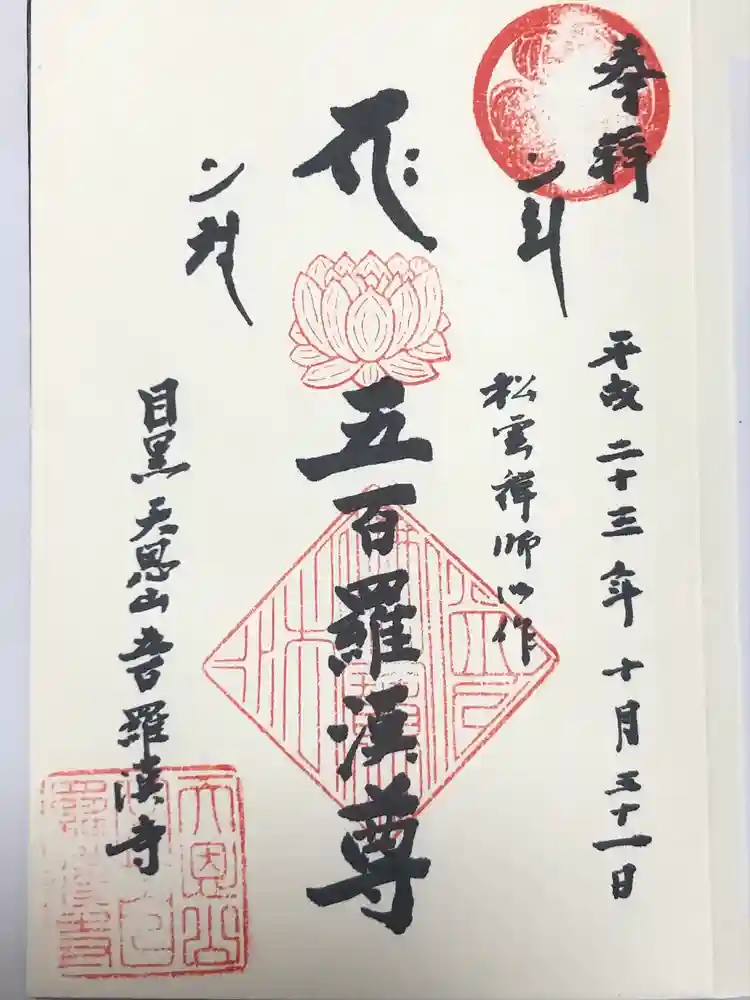 奉拝
平成二十三年十月三十一日
松雲禅師御作
五百羅漢尊
目黒天恩山五百羅漢寺
天恩山